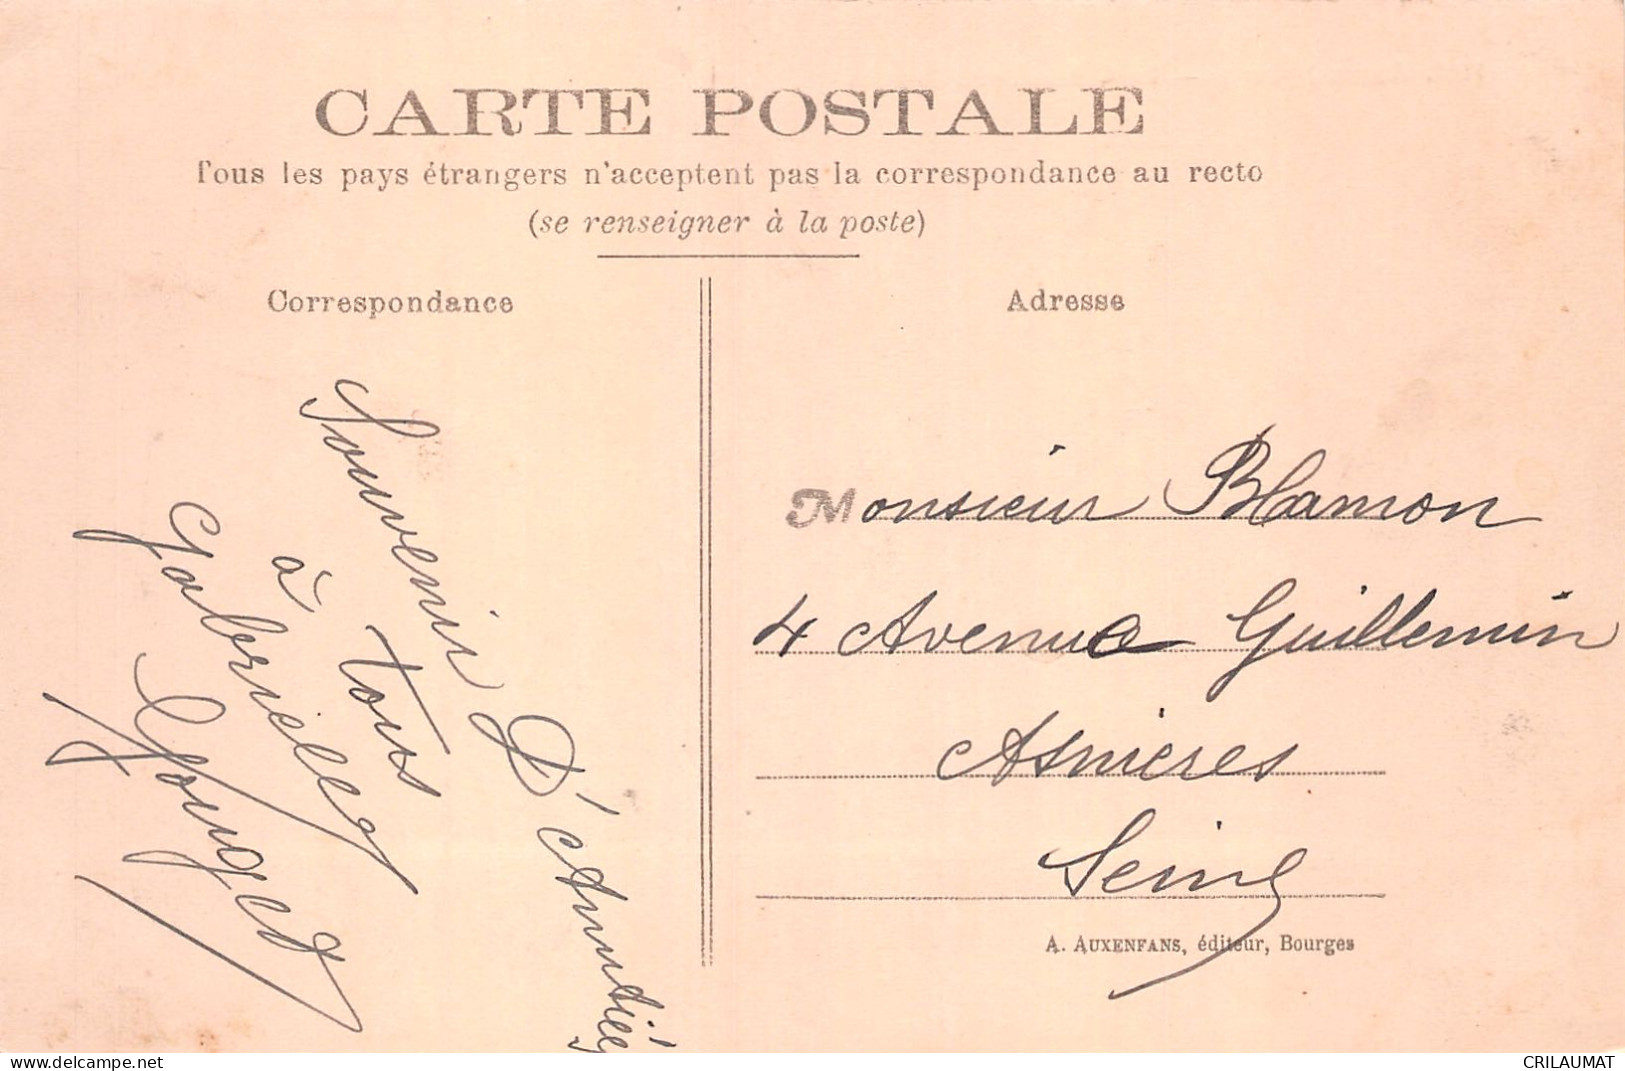 CARTE POSTALE
Tous les pays étrangers n'acceptent pas la correspondance au recto
(se renseigner à la poste)
Correspondance
Adresse
Souvenir D'
à tous
Gabrielle
Monsieur Blamon
4 Avenue Guillemin
Asnières
Seine
A. AUXENFANS, éditeur, Bourges
https://www.delcampe.net
CRILAUMAT